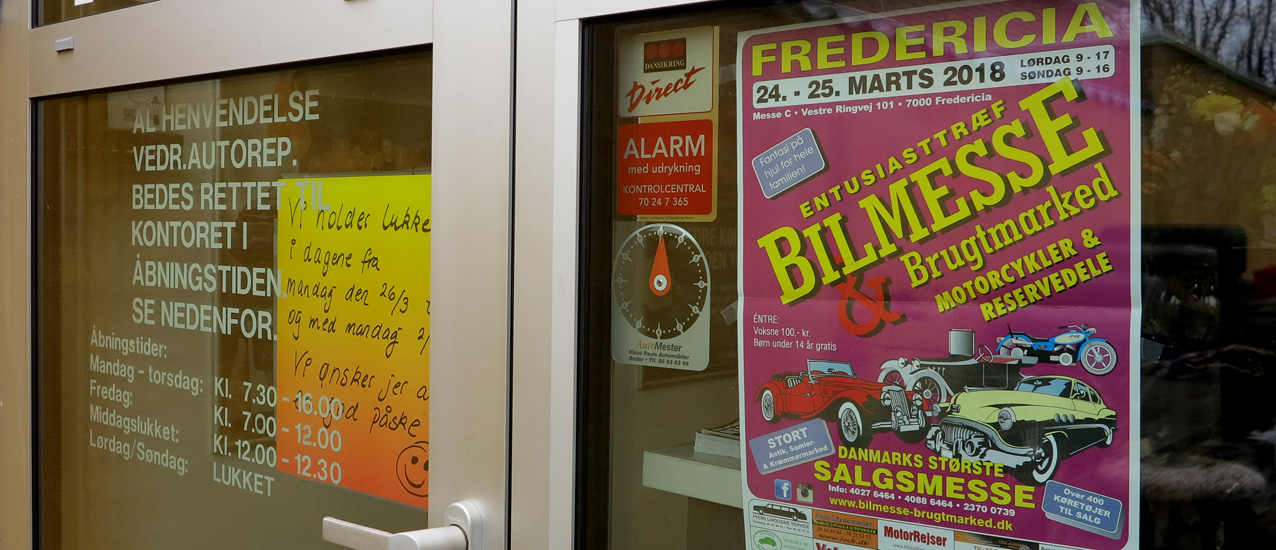 AL HENVENDELSE
VEDR.AUTOREP.
BEDES RETTET TIL
KONTORET I
ÅBNINGSTIDEN.
SE NEDENFOR.
Åbningstider:
Mandag - torsdag: Kl. 7.30 - 16.00
Fredag: Kl. 7.00 - 12.00
Middagslukket: Kl. 12.00 - 12.30
Lørdag/Søndag: LUKKET
Vi holder lukke
i dagene fra
mandag den 26/3
og med mandag 2/
Vi ønsker jer a
god påske
DANSIKRING
Direct
ALARM
med udrykning
KONTROLCENTRAL
70 24 7 365
AutoMester
Klaus Pauls Automobiler
FREDERICIA
24. - 25. MARTS 2018
LØRDAG 9 - 17
SØNDAG 9 - 16
Messe C • Vestre Ringvej 101 • 7000 Fredericia
Fantasi på
hjul for hele
familien!
ENTUSIASTTRÆF
BILMESSE
& Brugtmarked
MOTORCYKLER &
RESERVEDELE
ÉNTRE:
Voksne 100,- kr.
Børn under 14 år gratis
STORT
Antik, Samler-
& Kræmmermarked
DANMARKS STØRSTE
SALGSMESSE
Info: 4027 6464 • 4088 6464 • 2370 0739
www.bilmesse-brugtmarked.dk
Over 400
KØRETØJER
TIL SALG
MotorRejser